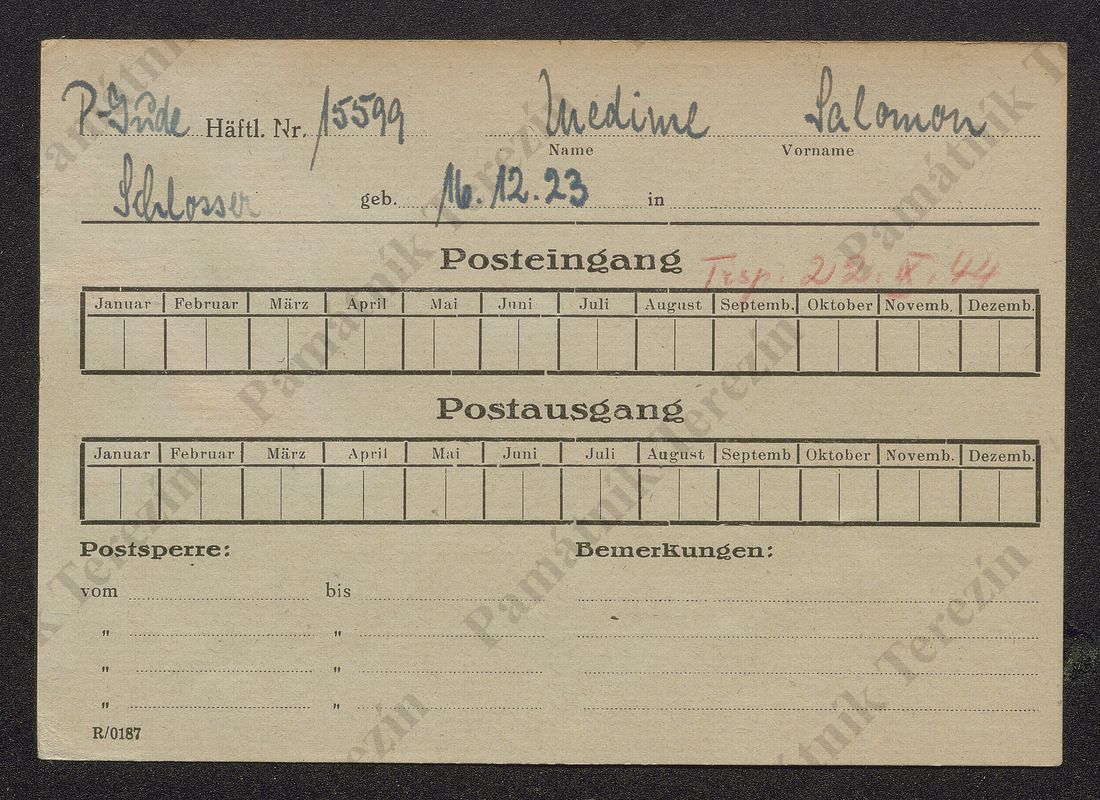 P-Jude Häftl. Nr. 15599 Salomon
Name Vorname
Schlosser geb. 16.12.23 in
Posteingang Trsp. 22.IX.44
Januar Februar März April Mai Juni Juli August Septemb. Oktober Novemb. Dezemb.
Postausgang
Januar Februar März April Mai Juni Juli August Septemb Oktober Novemb. Dezemb.
Postsperre: Bemerkungen:
vom bis
" "
" "
" "
R/0187
Památník Terezín